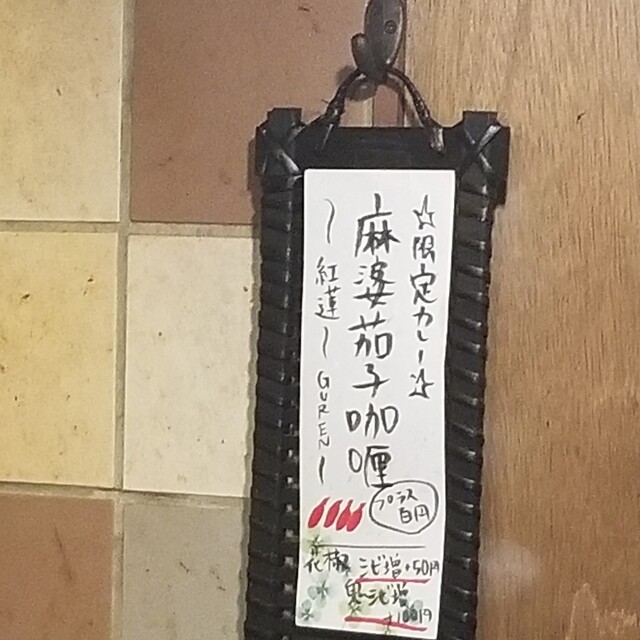 ☆限定カレー☆
麻婆茄子咖喱
プラス
百円
〜紅蓮〜GUREN〜
花椒
シビ増+50円
鬼シビ増
+100円